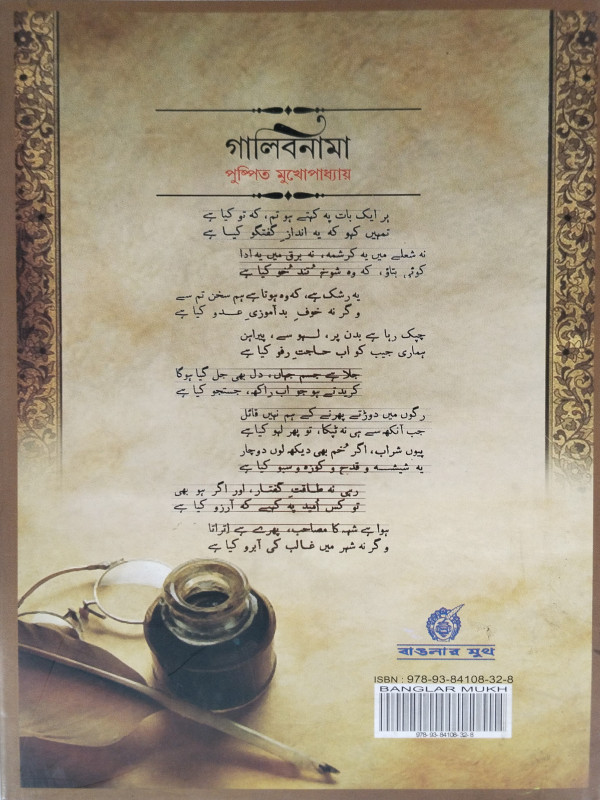 গালিবনামা
পুষ্পিত মুখোপাধ্যায়
ہر ایک بات پہ کہتے ہو تم، کہ تو کیا ہے
تمہیں کہو کہ یہ اندازِ گفتگو کیا ہے
نہ شعلے میں یہ کرشمہ، نہ برق میں یہ ادا
کوئی بتاؤ، کہ وہ شوخِ تُند خُو کیا ہے
یہ رشک ہے، کہ وہ ہوتا ہے ہم سخن تم سے
وگرنہ خوفِ بدآموزیِ عدو کیا ہے
چپک رہا ہے بدن پر، لہو سے، پیراہن
ہماری جیب کو اب حاجتِ رفو کیا ہے
جلا ہے جسم جہاں، دل بھی جل گیا ہوگا
کریدتے ہو جو اب راکھ، جستجو کیا ہے
رگوں میں دوڑتے پھرنے کے ہم نہیں قائل
جب آنکھ سے ہی نہ ٹپکا، تو پھر لہو کیا ہے
پیوں شراب، اگر خُم بھی دیکھ لوں دوچار
یہ شیشہ و قدح و کوزہ و سبو کیا ہے
رہی نہ طاقتِ گفتار، اور اگر ہو بھی
تو کس اُمید پہ کہئے کہ آرزو کیا ہے
ہوا ہے شہ کا مصاحب، پھرے ہے اِتراتا
وگرنہ شہر میں غالب کی آبرو کیا ہے
বাঙলার মুখ
ISBN : 978-93-84108-32-8
BANGLAR MUKH
978-93-84108-32-8